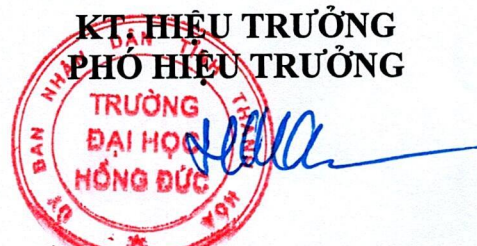 KT. HIỆU TRƯỞNG
PHÓ HIỆU TRƯỞNG
ỦY BAN NHÂN DÂN TỈNH THANH HÓA
TRƯỜNG
ĐẠI HỌC
HỒNG ĐỨC